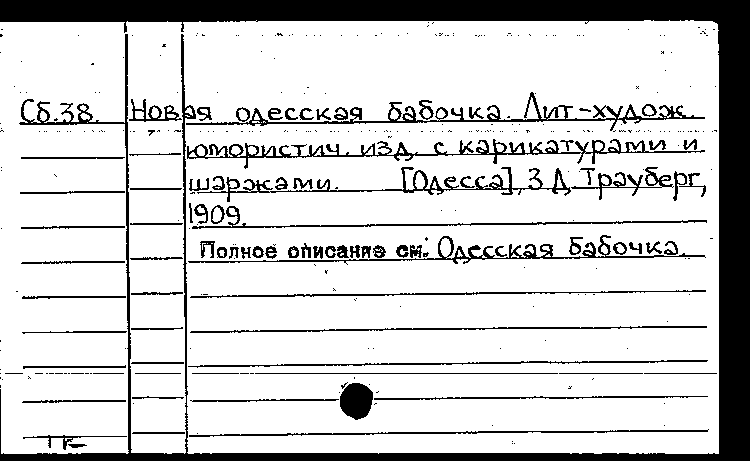 Сб.38. Новая одесская бабочка. Лит.-худож.
юмористич. изд. с карикатурами и
шаржами. [Одесса], З.Д. Трауберг,
1909.
Полное описание см. Одесская бабочка.